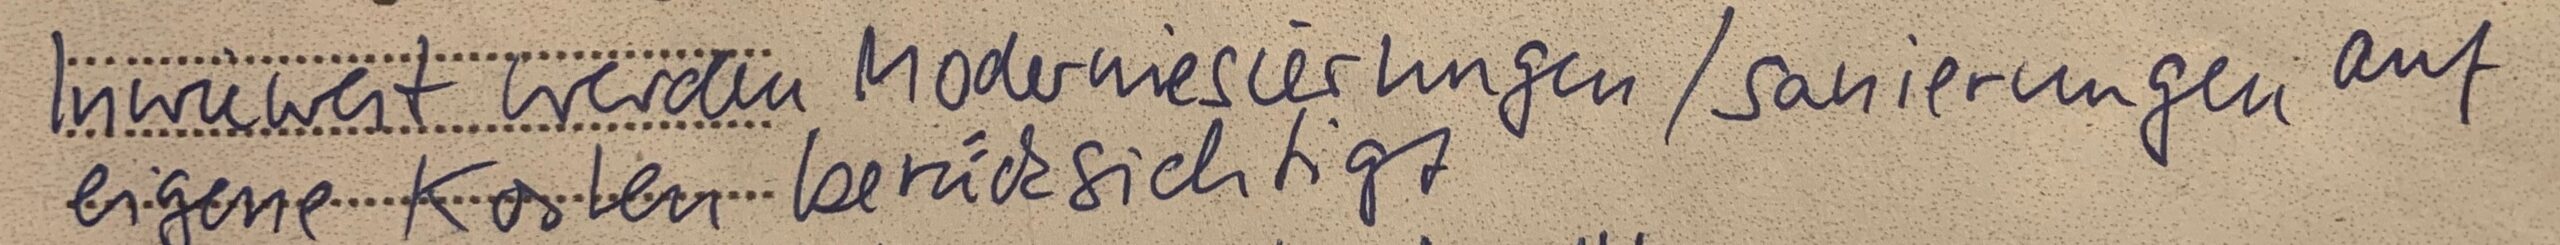 Inwieweit werden Moderniesierungen / Sanierungen auf
eigene Kosten berücksichtigt